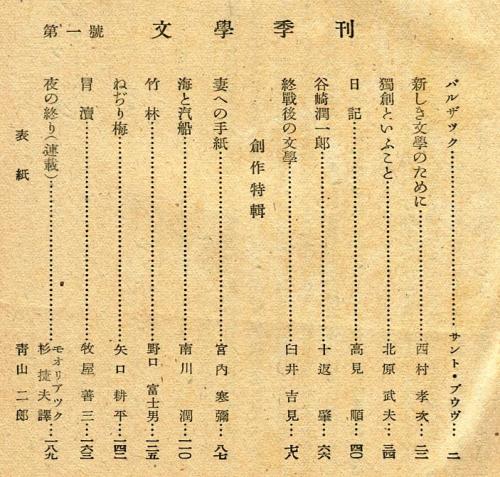 文學季刊
第一號
バルザック……サント・ブウヴ…二
新しき文學のために……西村孝次…二二
獨創といふこと……北原武夫…三四
日記……高見順…四〇
谷崎潤一郎……十返肇…六六
終戰後の文學……臼井吉見…七八
創作特輯
妻への手紙……宮内寒彌…八七
海と汽船……南川潤…一一〇
竹林……野口富士男…一二五
ねぢり梅……矢口耕平…一四二
冒瀆……牧屋善三…一六三
夜の終り(連載)……モオリアツク 杉捷夫譯…一八九
表紙 靑山二郎